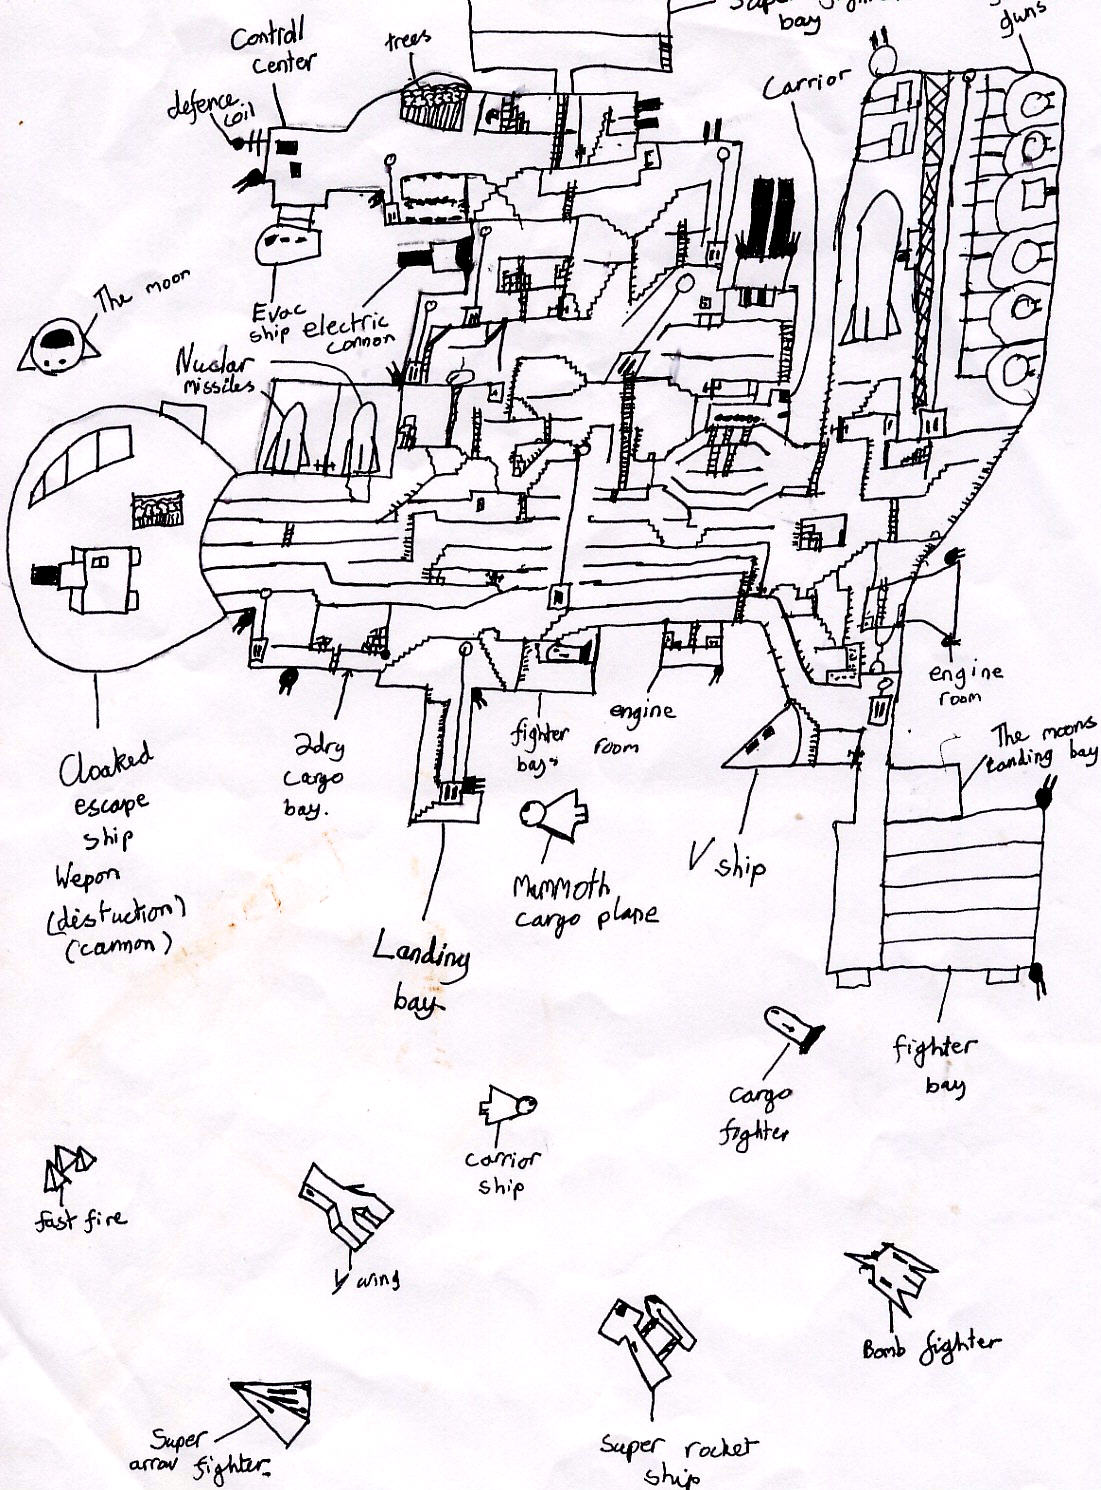 bay
guns
Controll
center
trees
defence
coil
Carrior
The moon
Evac
ship
electric
cannon
Nuclar
missiles
engine
room
fighter
bays
engine
room
The moons
Landing bay
2dry
cargo
bay.
Cloaked
escape
ship
Wepon
(distuction)
(cannon)
V ship
Mammoth
cargo plane
Landing
bay
fighter
bay
cargo
fighter
carrior
ship
fast fire
V wing
Bomb fighter
Super
arrow fighter
Super rocket
ship